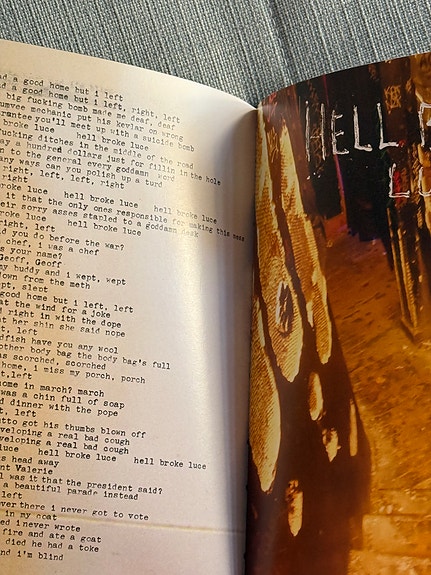 ad a good home but i left
ad a good home but i left, right, left
big fucking bomb made me deaf, deaf
umvee mechanic put his kevlar on wrong
rantee you'll meet up with a suicide bomb
broke luce hell broke luce
fucking ditches in the middle of the road
ay a hundred dollars just for fillin in the hole
n to the general every goddamn word
any ways can you polish up a turd
right, left, left, right
right
broke luce hell broke luce hell broke luce
it that the only ones responsible for making this mess
heir sorry asses stapled to a goddamn desk
roke luce hell broke luce
right, left
d you do before the war?
a chef, i was a chef
s your name?
Geoff, Geoff
my buddy and i wept, wept
down from the meth
ept, slept
good home but i left, left
at the wind for a joke
d right in with the dope
t her shin she said nope
t, left
dfish have you any wool
other body bag the body bag's full
as scorched, scorched
home, i miss my porch, porch
t.left
some in march? march
was a chin full of soap
d dinner with the pope
t, left
utto got his thumbs blown off
veloping a real bad cough
veloping a real bad cough
luce hell broke luce hell broke luce
s head away
nt Valerie
l was it that the president said?
a beautiful parade instead
left
ver there i never got to vote
in my coat
ed i never wrote
fire and ate a goat
died he had a toke
nd i'm blind
HELL
LU